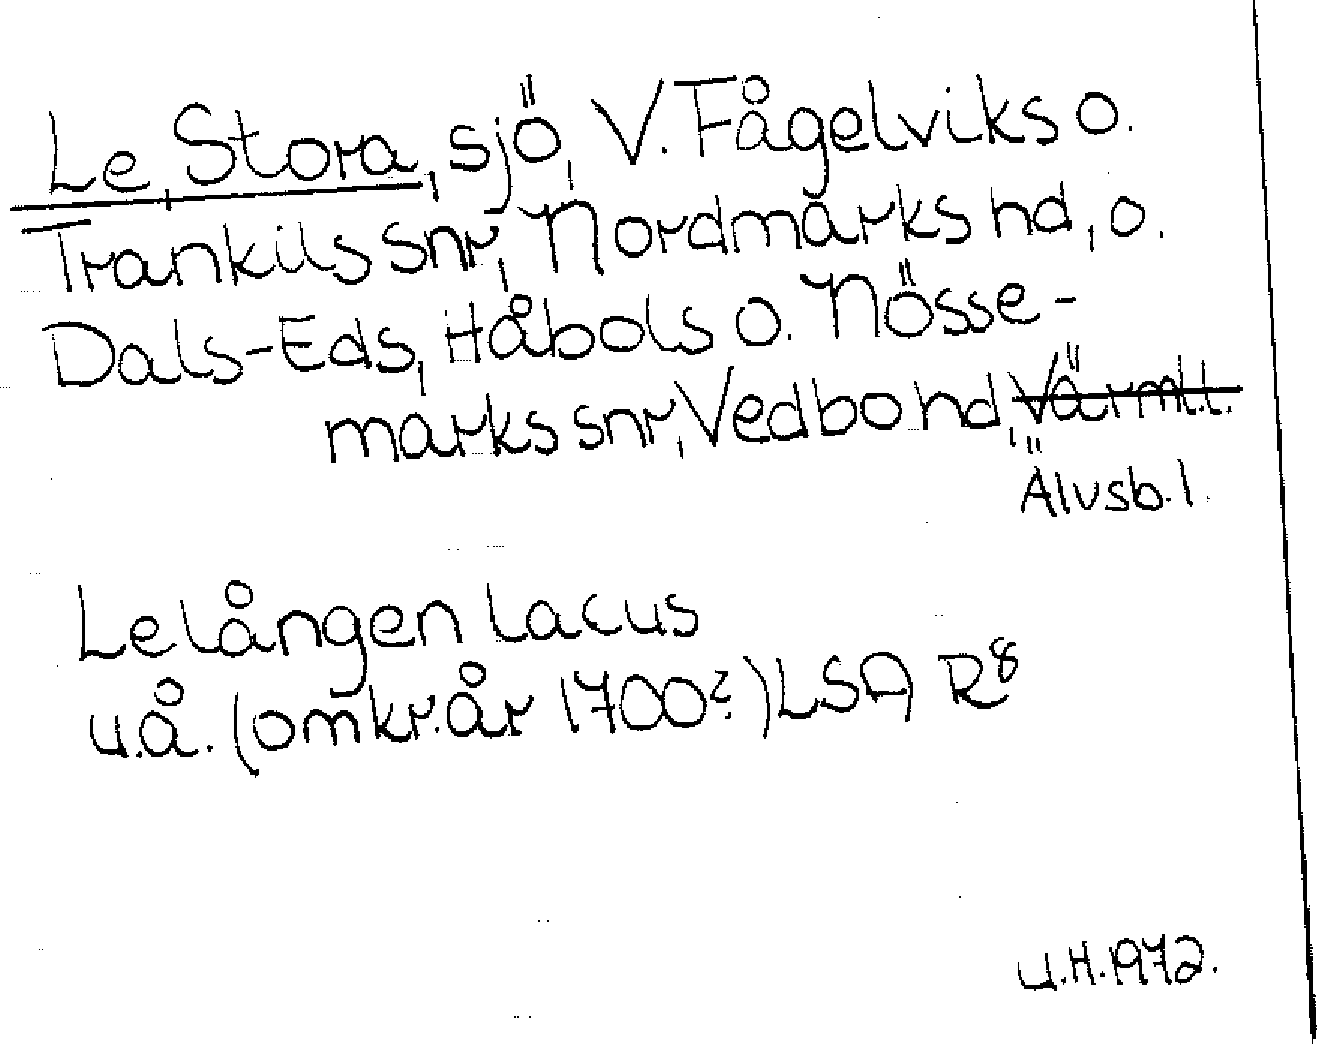 Le, Stora, sjö, V. Fågelviks o.
Trankils snr, Nordmarks hd, o.
Dals-Eds, Håbols o. Nösse-
marks snr, Vedbo hd, Värml.l.
Älvsb.l.
Lelången lacus
u.å. (omkr.år 1700?) LSA R8
U.H.1972.